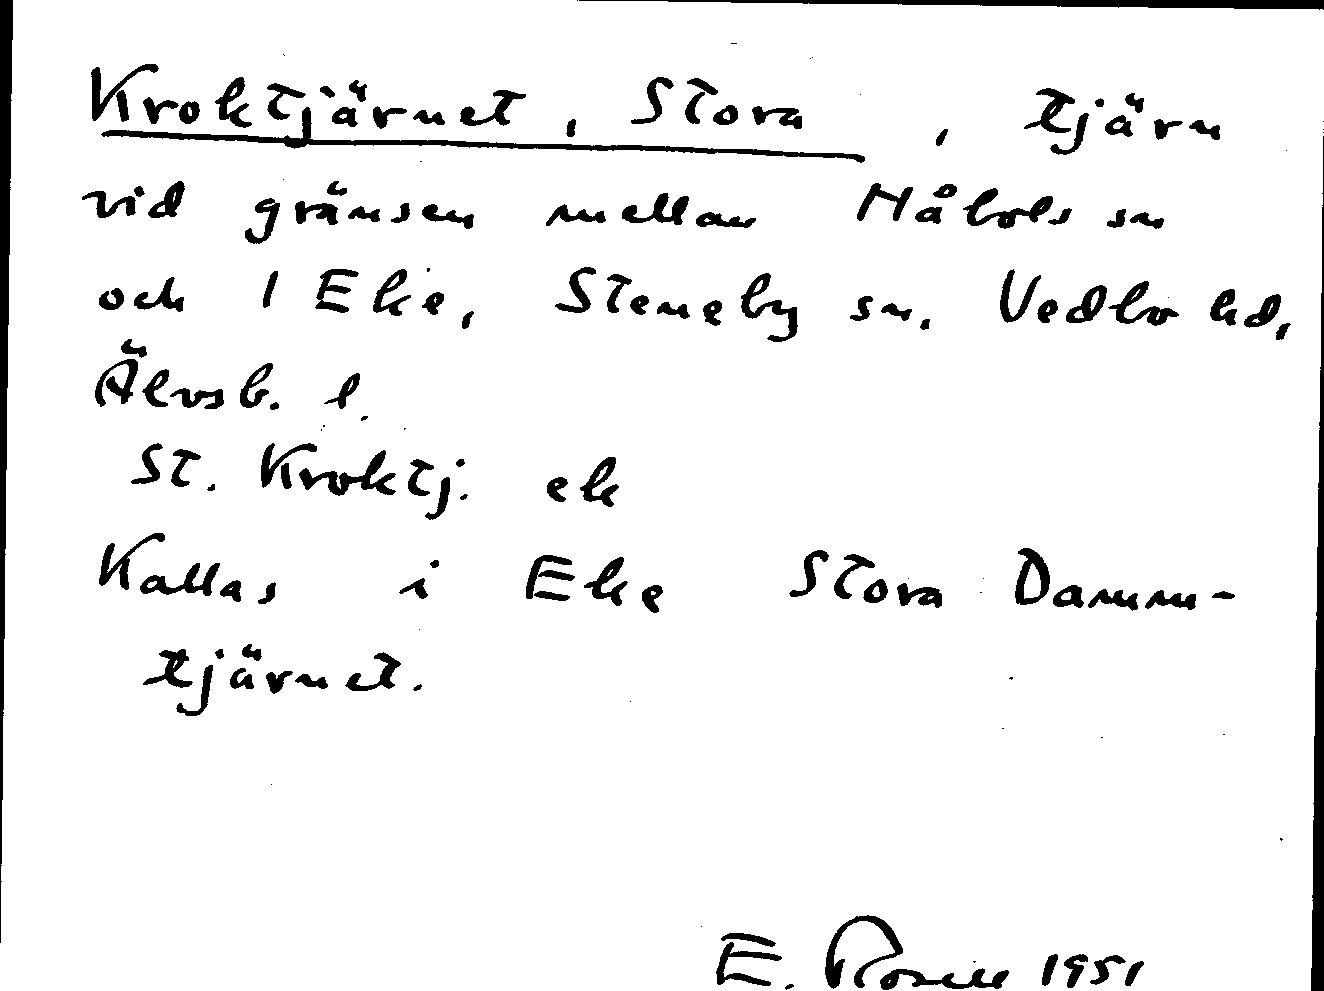 Kroktjärnet, Stora, tjärn
vid gränsen mellan Håbols sn
och 1 Eke, Steneby sn. Vedbo hd,
Älvsb. l.
St. Kroktj. ek
Kallas i Eke Stora Damm-
tjärnet.
E. Rosell 1951